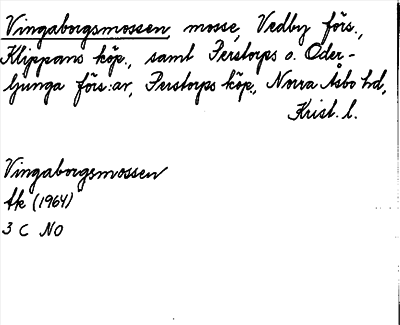 Vingaborgsmossen mosse, Vedby förs.,
Klippans köp., samt Perstorps o. Oder-
ljunga förs:ar, Perstorps köp., Norra Åsbo hd,
Krist. l.
Vingaborgsmossen
tk (1964)
3 C NO